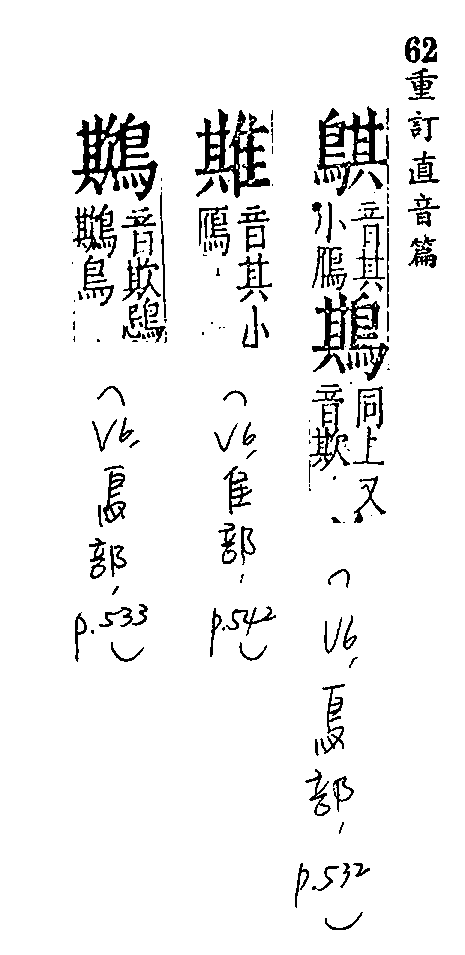 62重訂直音篇
音其
小鴈
鶀
同上又
音欺
(V6,鳥部,p.532)
音其小
鴈
(V6,隹部,p.542)
鶀
音欺鵋
鶀鳥
(V6,鳥部,p.533)